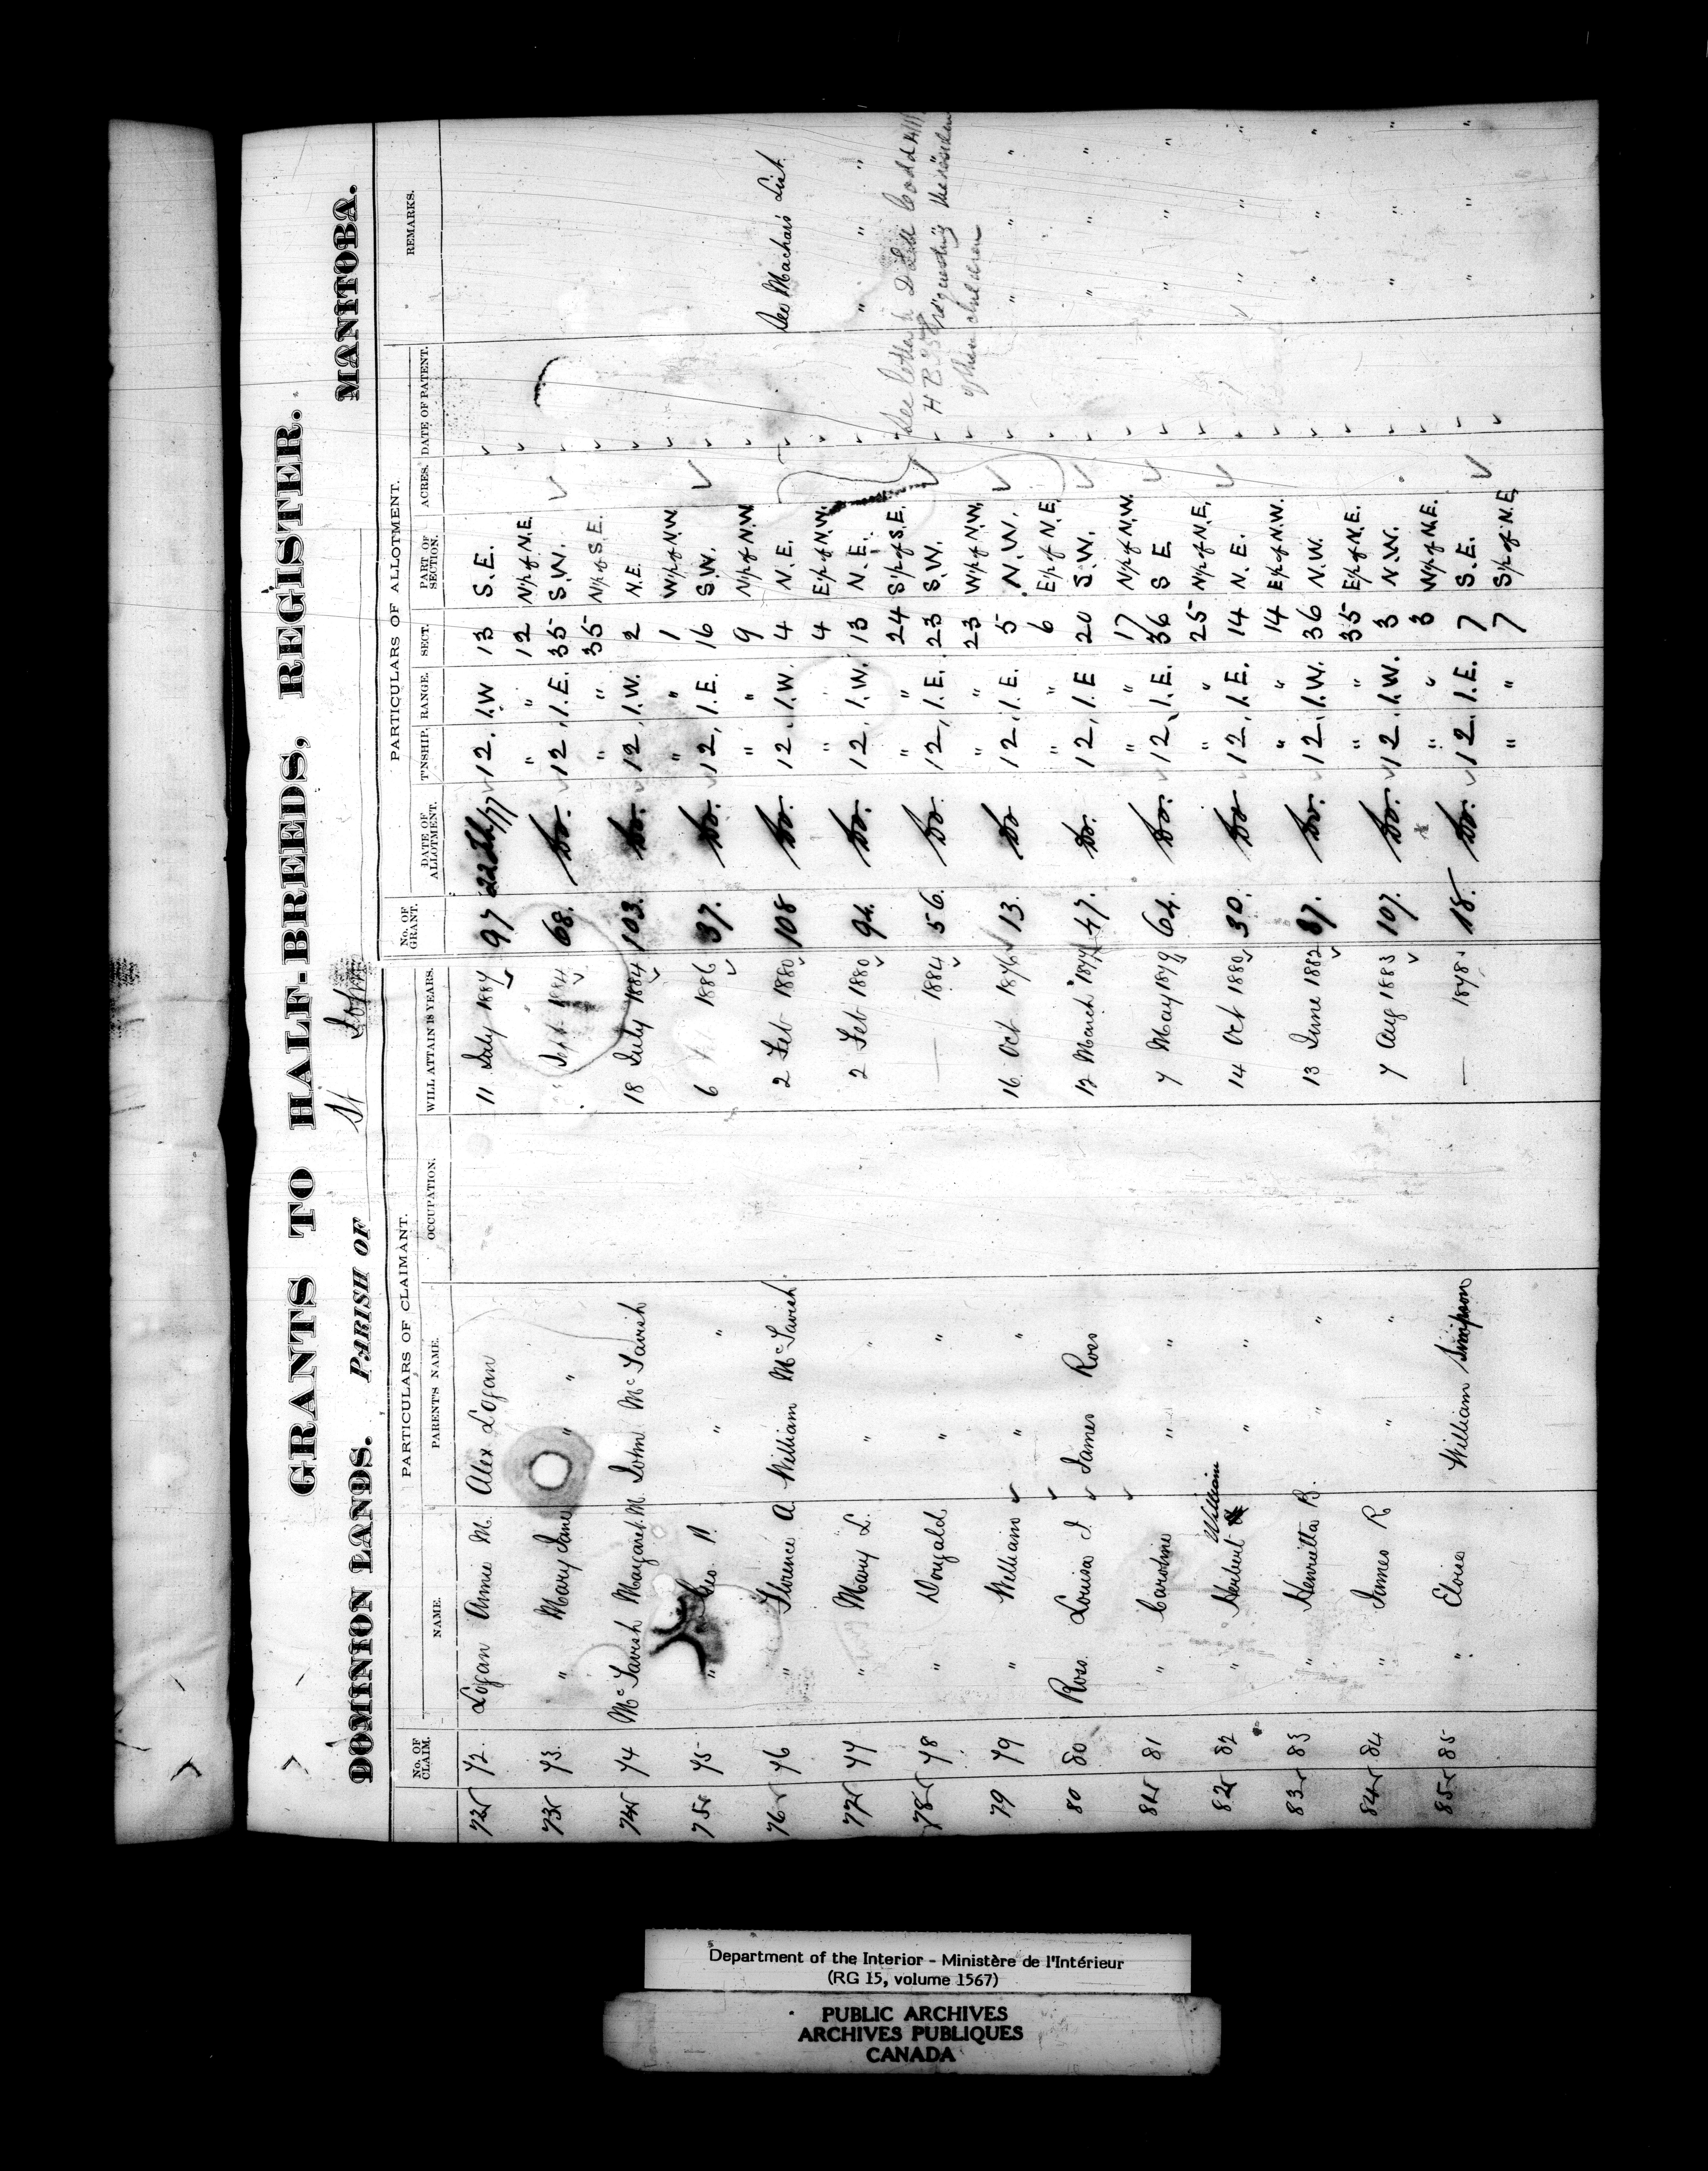 GRANTS TO HALF-BREEDS, REGISTER.
DOMINION LANDS. PARISH OF St John MANITOBA.
PARTICULARS OF CLAIMANT. PARTICULARS OF ALLOTMENT.
No. OF CLAIM. NAME. PARENT'S NAME. OCCUPATION. WILL ATTAIN 18 YEARS. No. OF GRANT. DATE OF ALLOTMENT. T'NSHIP. RANGE. SECT. PART OF SECTION. ACRES. DATE OF PATENT. REMARKS.
72 72 Logan Annie M. Alex Logan 11 July 1887 97 22 /77 12. 1.W 13 S.E.
" " 12 N/p of N.E.
73 73 " Mary Jane " " " Sept 1884 68. Do. 12, 1.E. 35 S.W.
" " 35 N/p of S.E.
74 74 McTavish Margaret M. John McTavish 18 July 1884 103. Do. 12, 1.W. 2 N.E.
" " 1 W/p of N.W.
75 75 " Geo. " " 6 1886 37. Do. 12, 1.E. 16 S.W.
" " 9 N/p of N.W.
76 76 " Florence A. William McTavish 2 Feb 1880 108 Do. 12. 1.W. 4 N.E. See Machar's List
" " 4 E/p of N.W.
77 77 " Mary L. " " 2 Feb 1880 94. Do. 12, 1.W. 13 N.E. " " "
" " 24 S/p of S.E. See letter to Codd
78 78 " Dougald " " — 1884 56. Do. 12, 1.E. 23 S.W. requesting the
" " 23 W/p of N.W. of these children
79 79 " William " " 16 Oct 1876 13. Do 12. 1.E. 5 N.W. " " "
" " 6 E/p of N.E.
80 80 Ross Louisa J James Ross 12 March 1877 47. Do. 12, 1.E 20 S.W. " " "
" " 17 N/p of N.W.
81 81 " Caroline " " 7 May 1879 64. Do. 12, 1.E. 36 S E. " " "
" " 25 N/p of N.E.
82 82 " Herbert William " " 14 Oct 1880 30. Do 12, 1.E. 14 N.E. " " "
" " 14 E/p of N.W.
83 83 " Henrietta B. " " 13 June 1882 87. Do. 12, 1.W. 36 N.W. " " "
" " 35 E/p of N.E.
84 84 " James R " " 7 Aug 1883 107. Do. 12. 1.W. 3 N.W. " " "
" " 3 W/p of N.E.
85 85 " Eloise William Simpson — 1878 18. Do. 12. 1.E. 7 S.E. " " "
" " 7 S/p of N.E.
Department of the Interior - Ministère de l'Intérieur
(RG 15, volume 1567)
PUBLIC ARCHIVES
ARCHIVES PUBLIQUES
CANADA